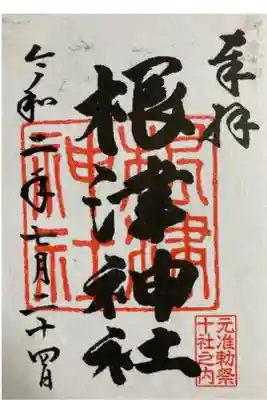 奉拝
根津神社
根津
神社
元准勅祭
十社之内
令和二年七月二十四日